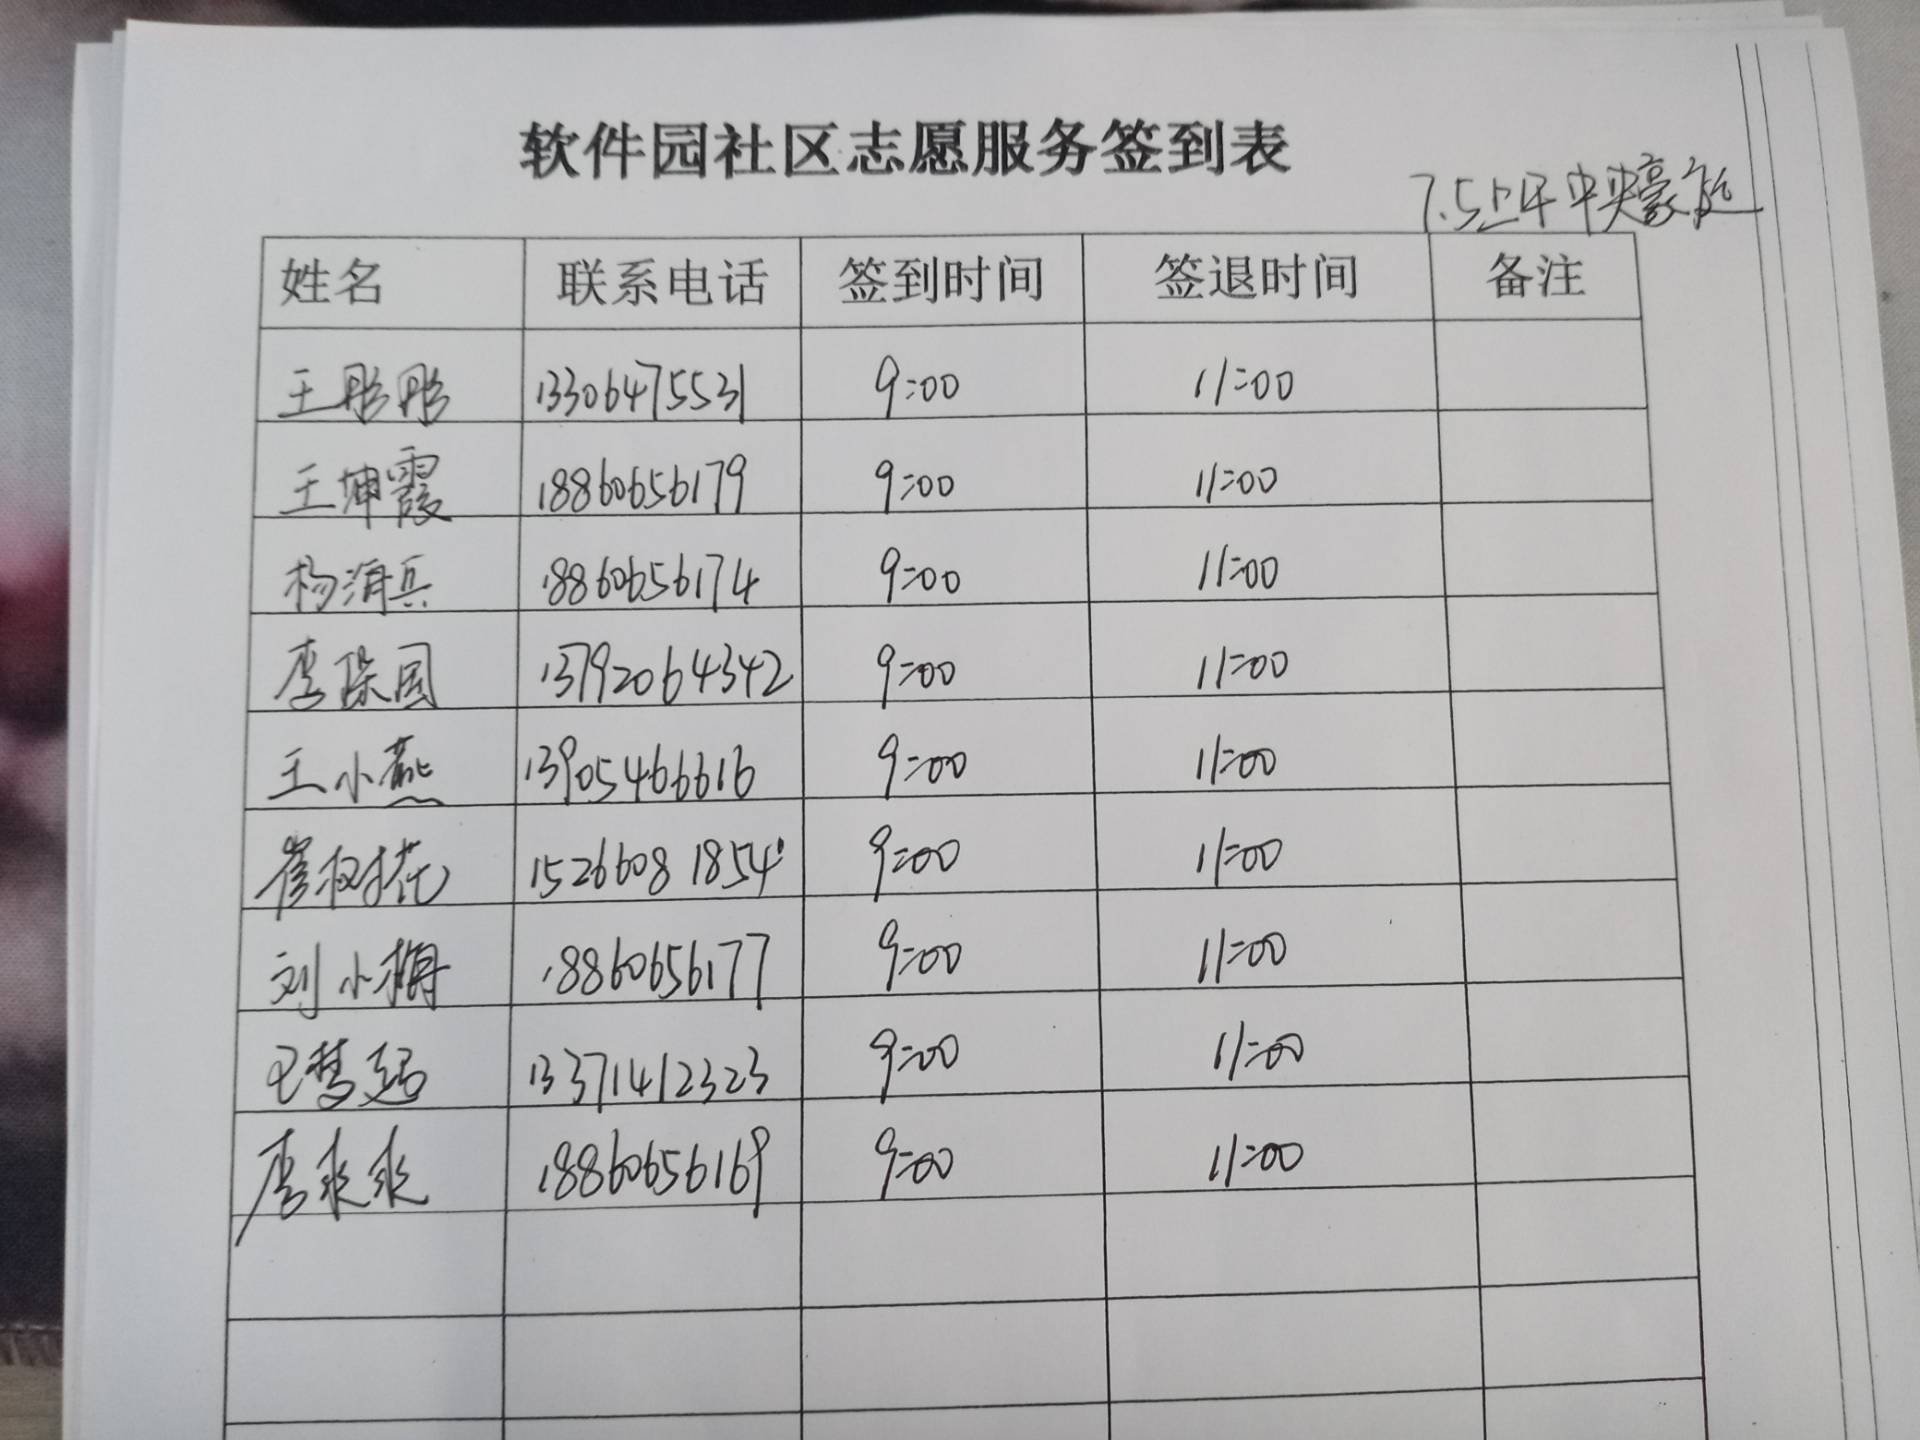 软件园社区志愿服务签到表
7.5上午中央豪庭
姓名 联系电话 签到时间 签退时间 备注
王彤彤 13306475531 9:00 11:00
王坤霞 18860656179 9:00 11:00
杨海兵 18860656174 9:00 11:00
李保国 13792064342 9:00 11:00
王小燕 13905466616 9:00 11:00
崔树花 15266081854 9:00 11:00
刘小梅 18860656177 9:00 11:00
13371412323 9:00 11:00
李爽爽 18860656169 9:00 11:00